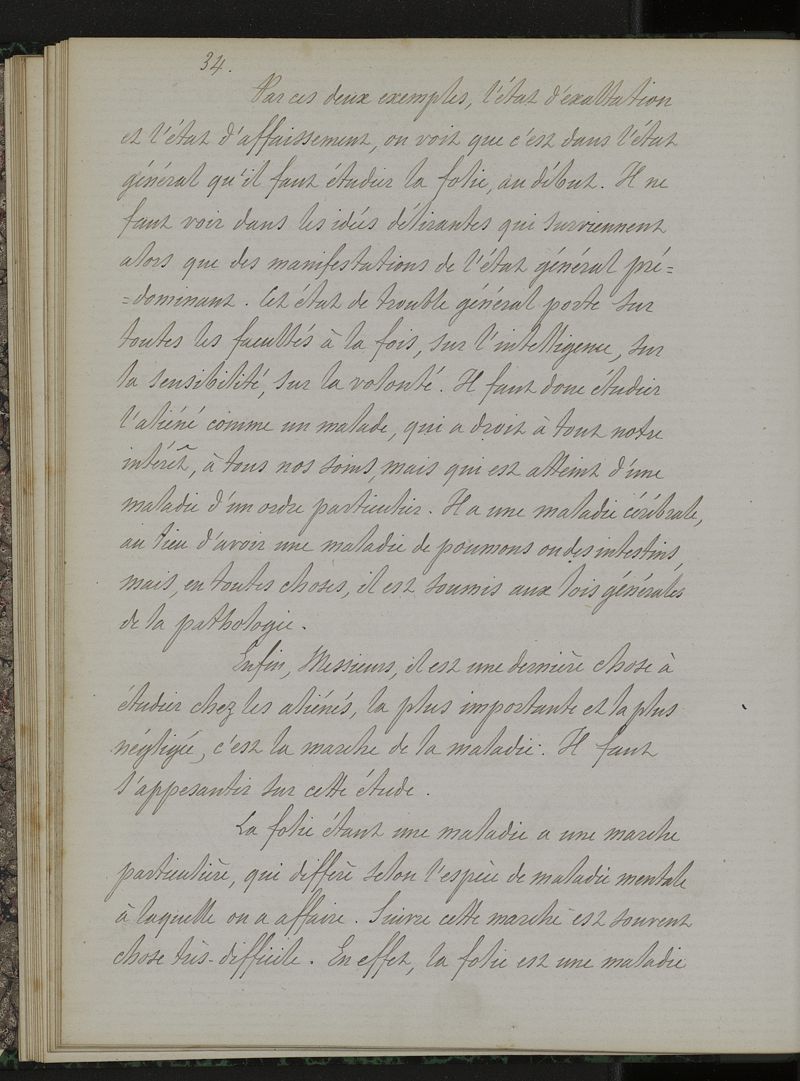 34.
Par ces deux exemples, l'état d'exaltation
et l'état d'affaissement, on voit que c'est dans l'état
général qu'il faut étudier la folie, au début. Il ne
faut voir dans les idées délirantes qui surviennent
alors que des manifestations de l'état général pré=
=dominant. Cet état de trouble général porte sur
toutes les facultés à la fois, sur l'intelligence, sur
la sensibilité, sur la volonté. Il faut donc étudier
l'aliéné comme un malade, qui a droit à tout notre
intérêt, à tous nos soins, mais qui est atteint d'une
maladie d'un ordre particulier. Il a une maladie cérébrale,
au lieu d'avoir une maladie de poumons ou des intestins,
mais, en toutes choses, il est soumis aux lois générales
de la pathologie.
Enfin, Messieurs, il est une dernière chose à
étudier chez les aliénés, la plus importante et la plus
négligée, c'est la marche de la maladie. Il faut
s'appesantir sur cette étude.
La folie étant une maladie a une marche
particulière, qui diffère selon l'espèce de maladie mentale
à laquelle on a affaire. Suivre cette marche est souvent
chose très-difficile. En effet, la folie est une maladie